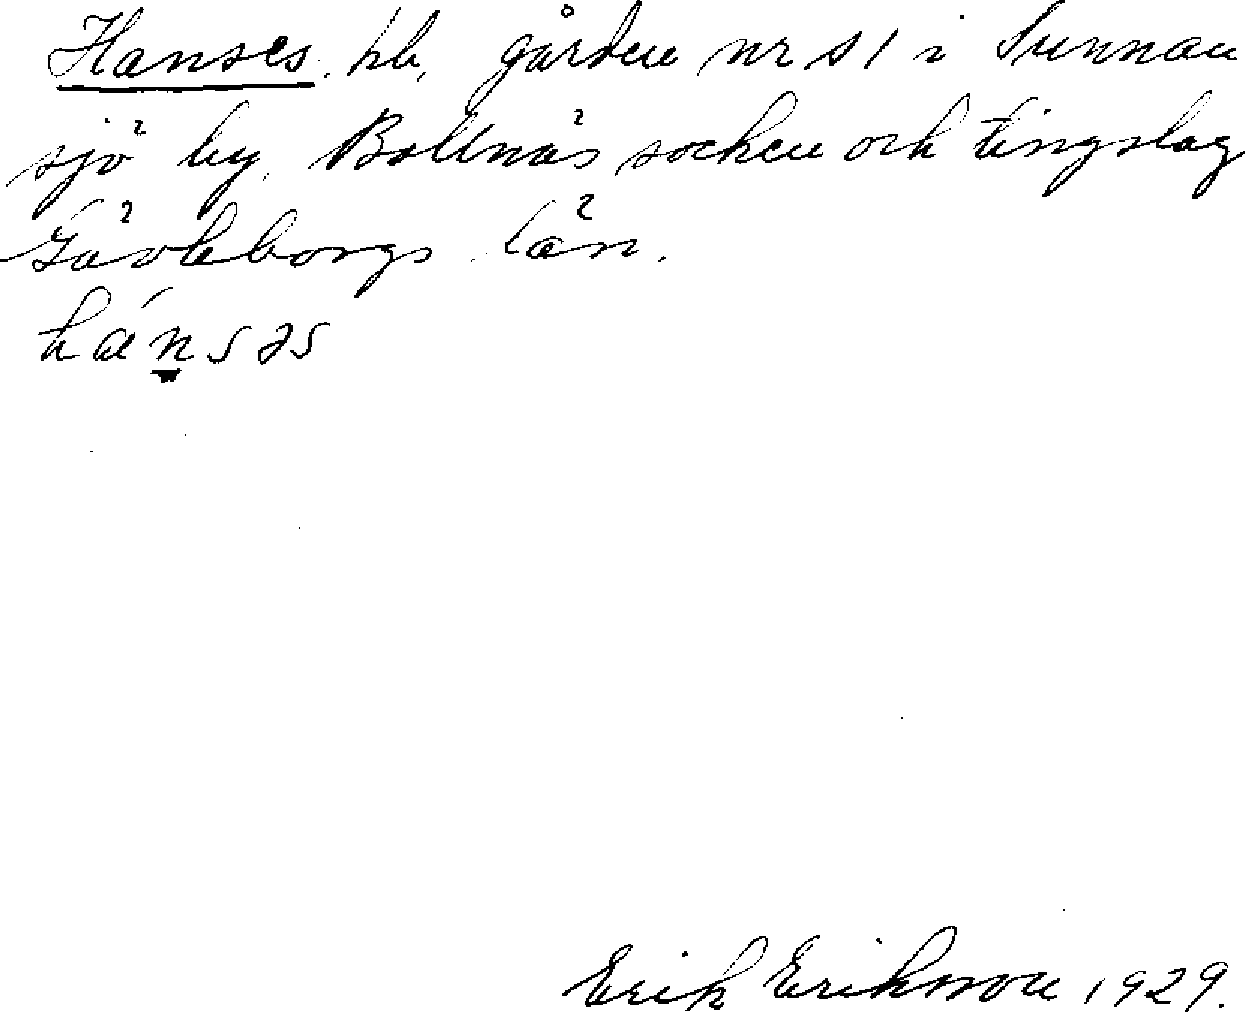 Hanses. hb. gården nr s1 i Sunnan
sjö by, Bollnäs socken och tingslag
Gävleborgs län.
hánsəs
Erik Eriksson 1929.